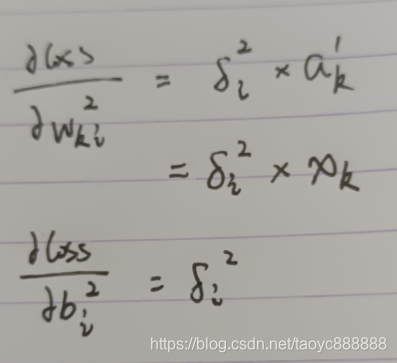 ∂loss/∂w_{ki}^2 = δ_i^2 × a_k^1
= δ_i^2 × x_k
∂loss/∂b_i^2 = δ_i^2
https://blog.csdn.net/taoyc888888